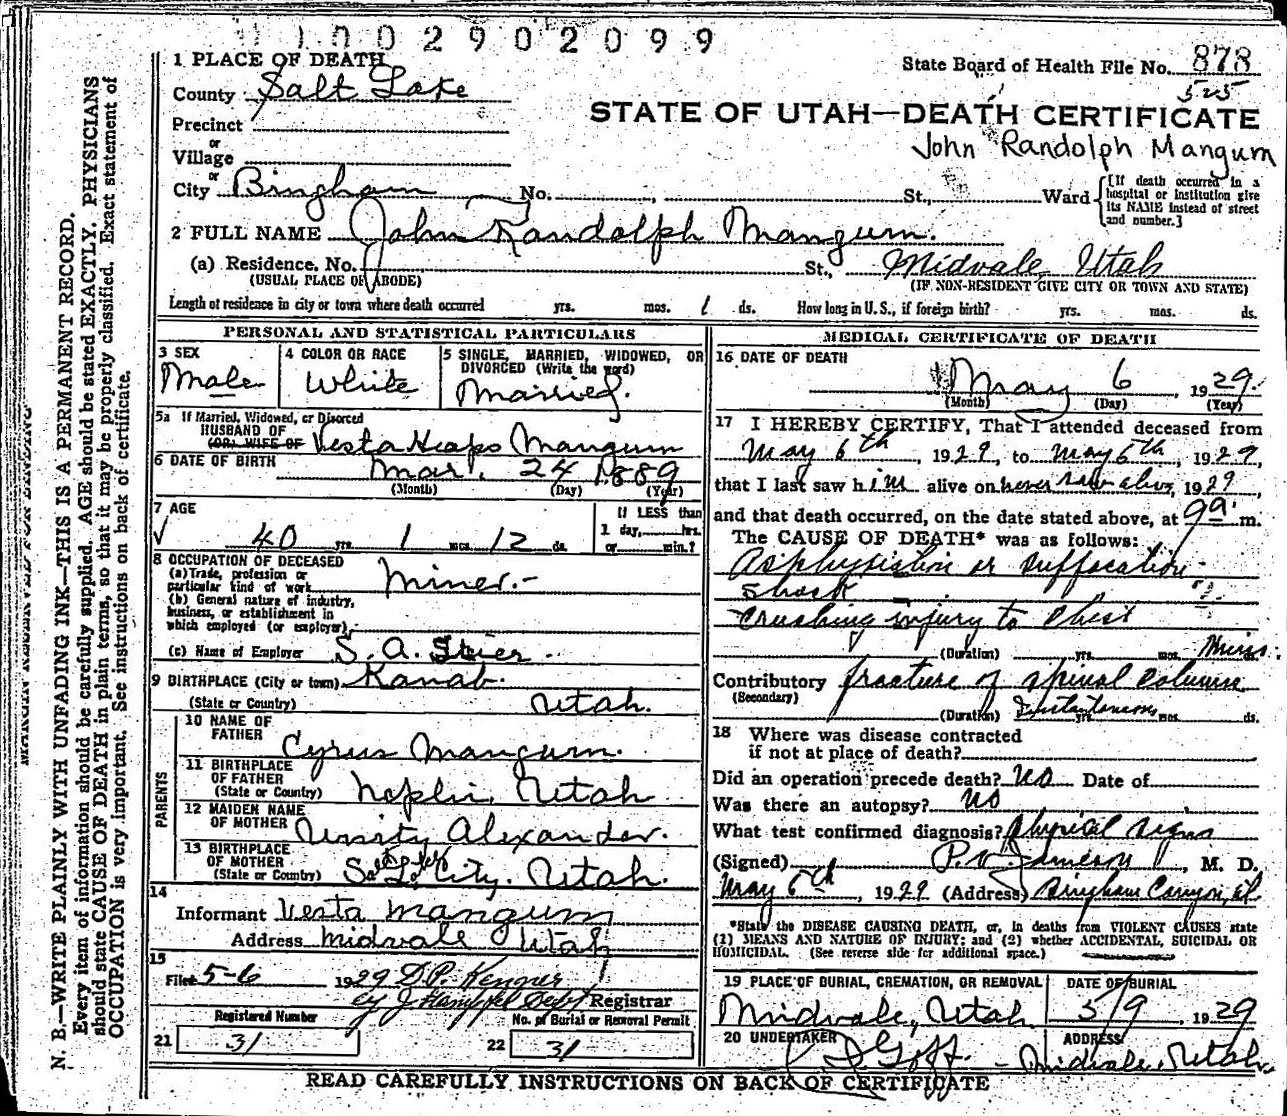 1 0 0 2 9 0 2 0 9 9
1 PLACE OF DEATH
State Board of Health File No. 878
525
County Salt Lake
STATE OF UTAH—DEATH CERTIFICATE
Precinct
John Randolph Mangum
or
Village
or
City Bingham No. St., Ward
[If death occurred in a hospital or institution give its NAME instead of street and number.]
2 FULL NAME John Randolph Mangum.
(a) Residence. No. St., Midvale, Utah
(USUAL PLACE OF ABODE) (IF NON-RESIDENT GIVE CITY OR TOWN AND STATE)
Length of residence in city or town where death occurred yrs. mos. 1 ds. How long in U. S., if foreign birth? yrs. mos. ds.
PERSONAL AND STATISTICAL PARTICULARS
3 SEX
Male
4 COLOR OR RACE
White
5 SINGLE, MARRIED, WIDOWED, OR
DIVORCED (Write the word)
Married.
5a If Married, Widowed, or Divorced
HUSBAND OF
(OR) WIFE OF Vesta Heaps Mangum
6 DATE OF BIRTH Mar. 24 1889
(Month) (Day) (Year)
7 AGE
40 yrs. 1 mos. 12 ds.
If LESS than
1 day, hrs.
or min.?
8 OCCUPATION OF DECEASED
(a) Trade, profession or
particular kind of work Miner.-
(b) General nature of industry,
business, or establishment in
which employed (or employer)
(c) Name of Employer S. A.
9 BIRTHPLACE (City or town) Kanab.
(State or Country) Utah.
PARENTS
10 NAME OF
FATHER Cyrus Mangum.
11 BIRTHPLACE
OF FATHER
(State or Country) Nephi, Utah
12 MAIDEN NAME
OF MOTHER Unity Alexander.
13 BIRTHPLACE
OF MOTHER
(State or Country) City. Utah.
14
Informant Vesta Mangum
Address Midvale Utah
15
Filed 5-6 1929 D.P.
Registrar
Registered Number
21 31
No. of Burial or Removal Permit
22 31
MEDICAL CERTIFICATE OF DEATH
16 DATE OF DEATH
May 6 1929
(Month) (Day) (Year)
17 I HEREBY CERTIFY, That I attended deceased from
May 6th, 1929, to May 6th, 1929,
that I last saw him alive on never saw alive, 1929,
and that death occurred, on the date stated above, at 9a m.
The CAUSE OF DEATH* was as follows:
Asphyxiation or suffocation
Shock
Crushing injury to Chest
(Duration) yrs. mos. Mins. ds.
Contributory fracture of spinal column
(Secondary)
(Duration) Instantaneous yrs. mos. ds.
18 Where was disease contracted
if not at place of death?
Did an operation precede death? No Date of
Was there an autopsy? No
What test confirmed diagnosis? Physical signs
(Signed) P. Jameson, M. D.
May 6th, 1929 (Address) Bingham Canyon, Ut.
*State the DISEASE CAUSING DEATH, or, in deaths from VIOLENT CAUSES state
(1) MEANS AND NATURE OF INJURY; and (2) whether ACCIDENTAL, SUICIDAL OR
HOMICIDAL. (See reverse side for additional space.)
19 PLACE OF BURIAL, CREMATION, OR REMOVAL
Midvale, Utah
DATE OF BURIAL
5/9 1929
20 UNDERTAKER
Goff.
ADDRESS
Midvale, Utah.
READ CAREFULLY INSTRUCTIONS ON BACK OF CERTIFICATE
N. B.—WRITE PLAINLY WITH UNFADING INK—THIS IS A PERMANENT RECORD.
Every item of information should be carefully supplied. AGE should be stated EXACTLY. PHYSICIANS
should state CAUSE OF DEATH in plain terms, so that it may be properly classified. Exact statement of
OCCUPATION is very important. See instructions on back of certificate.